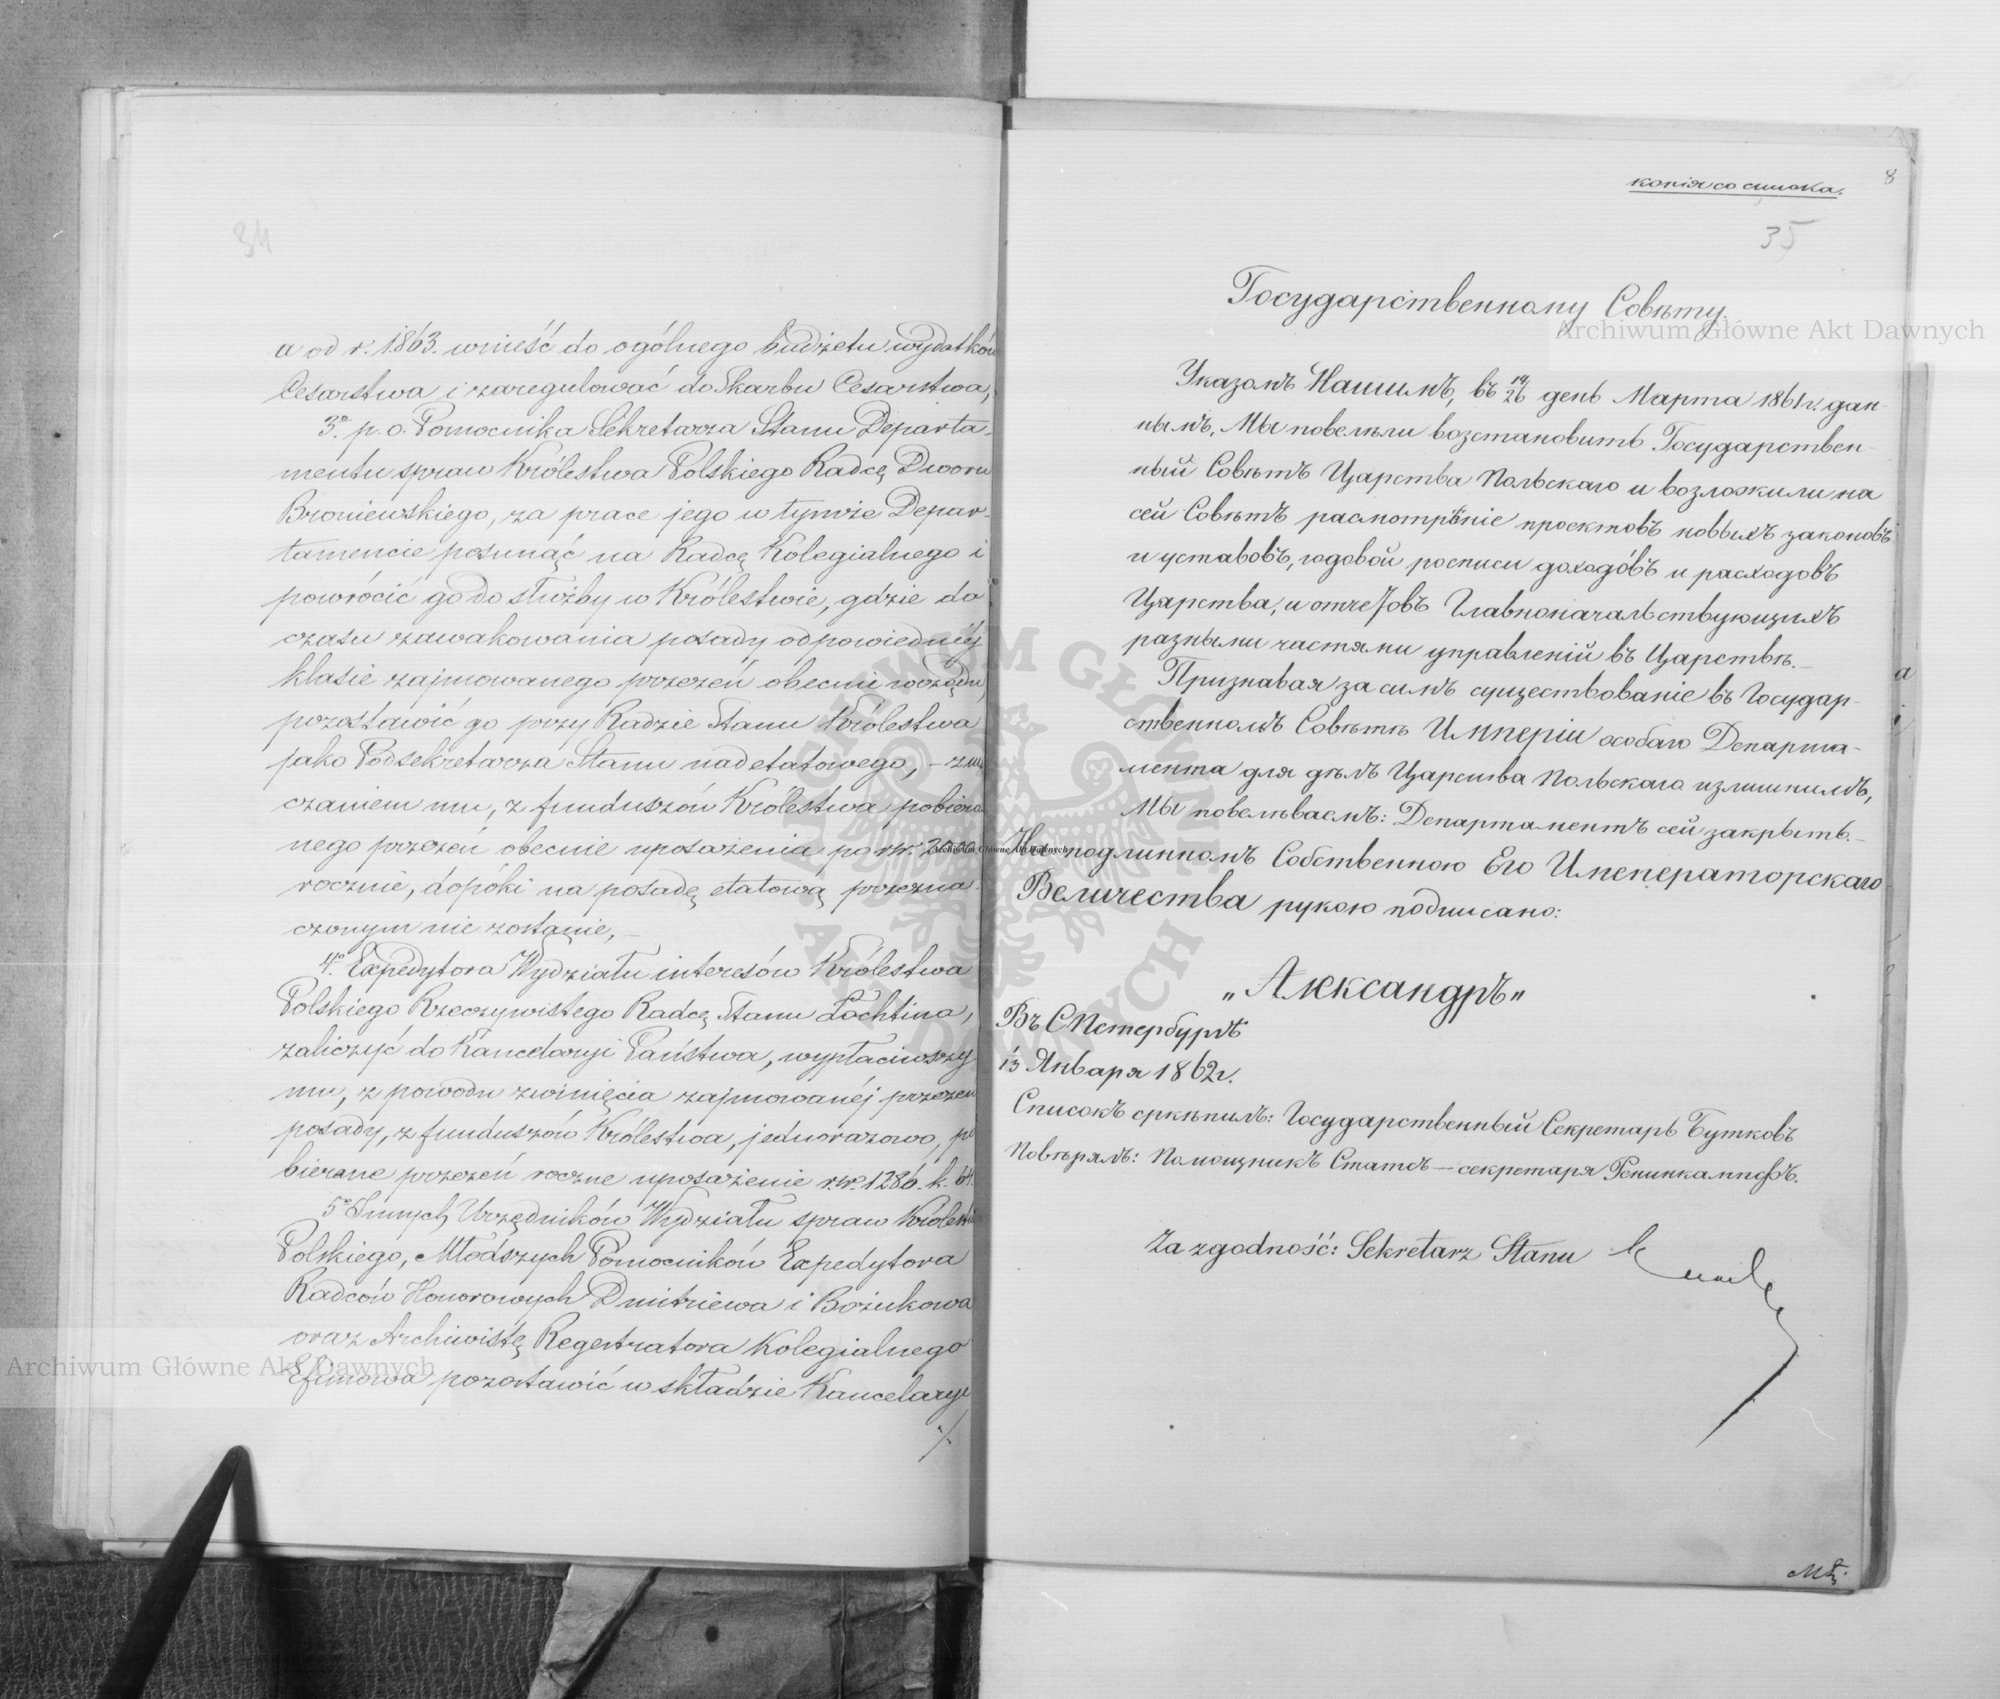 34
a od r. 1863. wnieść do ogólnego budżetu wydatków
Cesarstwa i zaregulować do Skarbu Cesarstwa,
3º. p. o. Pomocnika Sekretarza Stanu Departa-
mentu spraw Królestwa Polskiego Radcę Dworu
Broniewskiego, za prace jego w tymże Depar-
tamencie posunąć na Radcę Kolegialnego i
powrócić go do służby w Królestwie, gdzie do
czasu zawakowania posady odpowiedniéj
klasie zajmowanego przezeń obecnie urzędu,
pozostawić go przy Radzie Stanu Królestwa
jako Podsekretarza Stanu nadetatowego, –
czaniem mu, z funduszów Królestwa pobiera-
nego przezeń obecnie uposażenia po rsr. 2000
rocznie, dopóki na posadę etatową przezna-
czonym nie zostanie, –
4º. Expedytora Wydziału interesów Królestwa
Polskiego Rzeczywistego Radcę Stanu Łochtina,
zaliczyć do Kancelaryi Państwa, wypłaciwszy
mu, z powodu zwinięcia zajmowanéj przezeń
posady, z funduszów Królestwa, jednorazowo, po
bierane przezeń roczne uposażenie rsr. 1286. k. 64.
5º Innych Urzędników Wydziału spraw Królestwa
Polskiego, Młodszych Pomocników Expedytora
Radców Honorowych Dmitriewa i Bożukowa
oraz Archiwistę Regestratora Kolegialnego
Efimowa pozostawić w składzie Kancelaryi
./.
копія со списка.
8
35
Государственному Совѣту.
Указомъ Нашимъ, въ 14/26 день Марта 1861 г. дан-
нымъ, Мы повелѣли возстановить Государствен-
ный Совѣтъ Царства Польскаго и возложили на
сей Совѣтъ расмотрѣніе проектовъ новыхъ законовъ
и уставовъ, годовой росписи доходовъ и расходовъ
Царства, и отчетовъ Главноначальствующихъ
разными частями управленій въ Царствѣ. –
Признавая за симъ существованіе въ Государ-
ственномъ Совѣтѣ Имперіи особаго Департа-
мента для дѣлъ Царства Польскаго излишнимъ,
Мы повелѣваемъ: Департаментъ сей закрыть. –
На подлинномъ Собственною Его Имеператорскаго
Величества рукою подписано:
„Александръ"
Въ СПетербургѣ
13 Января 1862 г.
Списокъ скрѣпилъ: Государственный Секретарь Бутковъ
Повѣрялъ: Помощникъ Статсъ – секретаря Ренинкампфъ.
Za zgodność: Sekretarz Stanu
Archiwum Główne Akt Dawnych
Archiwum Główne Akt Dawnych
Archiwum Główne Akt Dawnych
ARCHIWUM GŁÓWNE AKT DAWNYCH